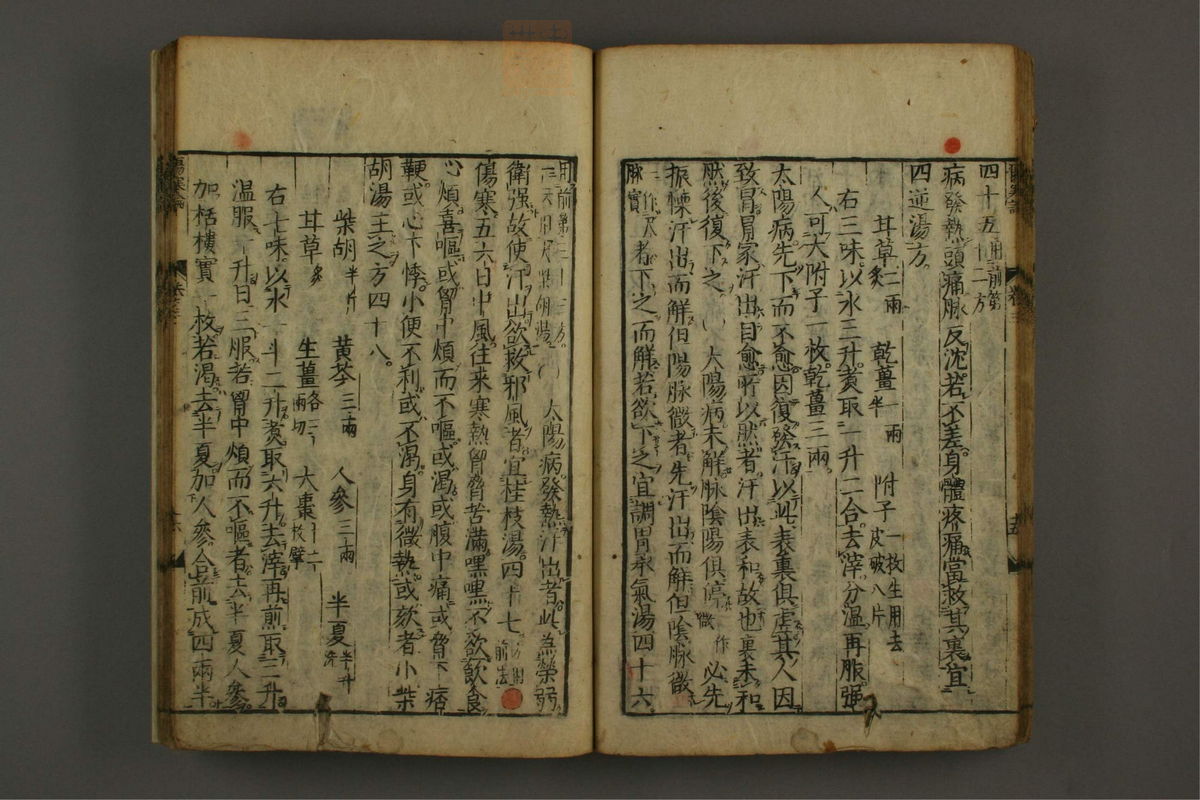 四十五用前第十二方
病發熱頭痛脉反沈若不差身體疼痛當救其裏宜
四逆湯方
甘草二兩炙 乾薑一兩半 附子一枚生用去皮破八片
右三味以水三升煑取一升二合去滓分温再服强
人可大附子一枚乾薑三兩
太陽病先下而不愈因復發汗以此表裏俱虚其人因
致冒冒家汗出自愈所以然者汗出表和故也裏未和
然後復下之 太陽病未解脉陰陽俱停一作微必先
振慄汗出而解但陽脉微者先汗出而解但陰脉微
一作尺脉實者下之而解若欲下之宜調胃承氣湯四十六
用前第三十三方 太陽病發熱汗出者此為榮弱
衛强故使汗出欲救邪風者宜桂枝湯四十七方用前法
傷寒五六日中風往来寒熱胷脅苦滿嘿嘿不欲飲食
心煩喜嘔或胷中煩而不嘔或渴或腹中痛或脅下痞
鞕或心下悸小便不利或不渴身有微熱或欬者小柴
胡湯主之方四十八
柴胡半斤 黄芩三兩 人參三兩 半夏半升洗
甘草炙 生薑各三兩切 大棗十二枚擘
右七味以水一斗二升煑取六升去滓再煎取三升
温服一升日三服若胷中煩而不嘔者去半夏人參
加栝樓實一枚若渴去半夏加人參合前成四兩半
傷寒論